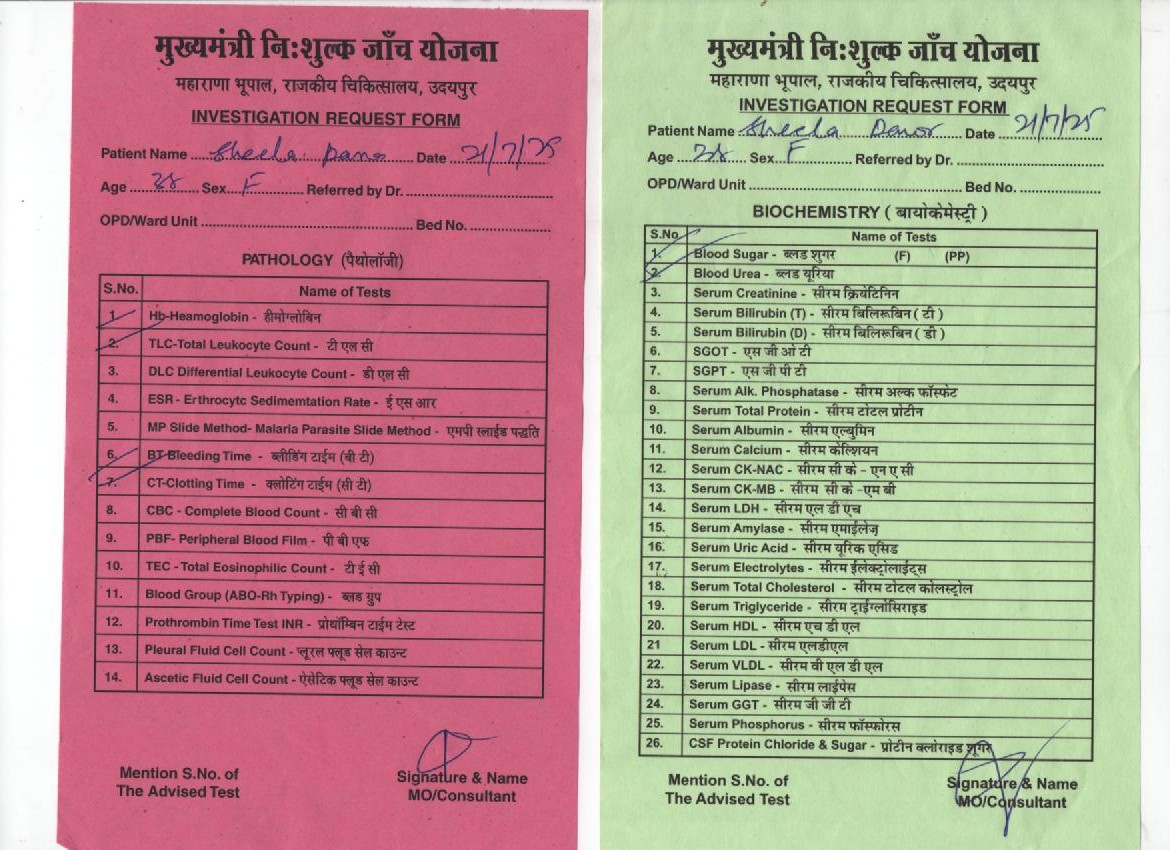 मुख्यमंत्री नि:शुल्क जाँच योजना
महाराणा भूपाल, राजकीय चिकित्सालय, उदयपुर
INVESTIGATION REQUEST FORM
Patient Name Sheela Date 21/7/25
Age Sex F Referred by Dr.
OPD/Ward Unit Bed No.
PATHOLOGY (पैथोलॉजी)
S.No. Name of Tests
1. Hb-Heamoglobin - हीमोग्लोबिन
2. TLC-Total Leukocyte Count - टी एल सी
3. DLC Differential Leukocyte Count - डी एल सी
4. ESR - Erthrocytc Sedimemtation Rate - ई एस आर
5. MP Slide Method- Malaria Parasite Slide Method - एमपी स्लाईड पद्धति
6. BT-Bleeding Time - ब्लीडिंग टाईम (बी टी)
7. CT-Clotting Time - क्लोटिंग टाईम (सी टी)
8. CBC - Complete Blood Count - सी बी सी
9. PBF- Peripheral Blood Film - पी बी एफ
10. TEC - Total Eosinophilic Count - टी ई सी
11. Blood Group (ABO-Rh Typing) - ब्लड ग्रुप
12. Prothrombin Time Test INR - प्रोथॉम्बिन टाईम टेस्ट
13. Pleural Fluid Cell Count - प्लूरल फ्लूड सेल काउन्ट
14. Ascetic Fluid Cell Count - ऐसेटिक फ्लूड सेल काउन्ट
Mention S.No. of
The Advised Test
Signature & Name
MO/Consultant
मुख्यमंत्री नि:शुल्क जाँच योजना
महाराणा भूपाल, राजकीय चिकित्सालय, उदयपुर
INVESTIGATION REQUEST FORM
Patient Name Sheela Date 21/7/25
Age Sex F Referred by Dr.
OPD/Ward Unit Bed No.
BIOCHEMISTRY ( बायोकेमेस्ट्री )
S.No. Name of Tests
1. Blood Sugar - ब्लड शुगर (F) (PP)
2. Blood Urea - ब्लड यूरिया
3. Serum Creatinine - सीरम क्रियेटिनिन
4. Serum Bilirubin (T) - सीरम बिलिरूबिन ( टी )
5. Serum Bilirubin (D) - सीरम बिलिरूबिन ( डी )
6. SGOT - एस जी ओ टी
7. SGPT - एस जी पी टी
8. Serum Alk. Phosphatase - सीरम अल्क फॉस्फेट
9. Serum Total Protein - सीरम टोटल प्रोटीन
10. Serum Albumin - सीरम एल्बुमिन
11. Serum Calcium - सीरम केल्शियन
12. Serum CK-NAC - सीरम सी के - एन ए सी
13. Serum CK-MB - सीरम सी के -एम बी
14. Serum LDH - सीरम एल डी एच
15. Serum Amylase - सीरम एमाईलेज़
16. Serum Uric Acid - सीरम यूरिक एसिड
17. Serum Electrolytes - सीरम ईलेक्ट्रोलाईट्स
18. Serum Total Cholesterol - सीरम टोटल कोलस्ट्रोल
19. Serum Triglyceride - सीरम ट्राईग्लोसिराइड
20. Serum HDL - सीरम एच डी एल
21 Serum LDL - सीरम एलडीएल
22. Serum VLDL - सीरम वी एल डी एल
23. Serum Lipase - सीरम लाईपेस
24. Serum GGT - सीरम जी जी टी
25. Serum Phosphorus - सीरम फॉस्फोरस
26. CSF Protein Chloride & Sugar - प्रोटीन क्लोराइड शूगर
Mention S.No. of
The Advised Test
Signature & Name
MO/Consultant